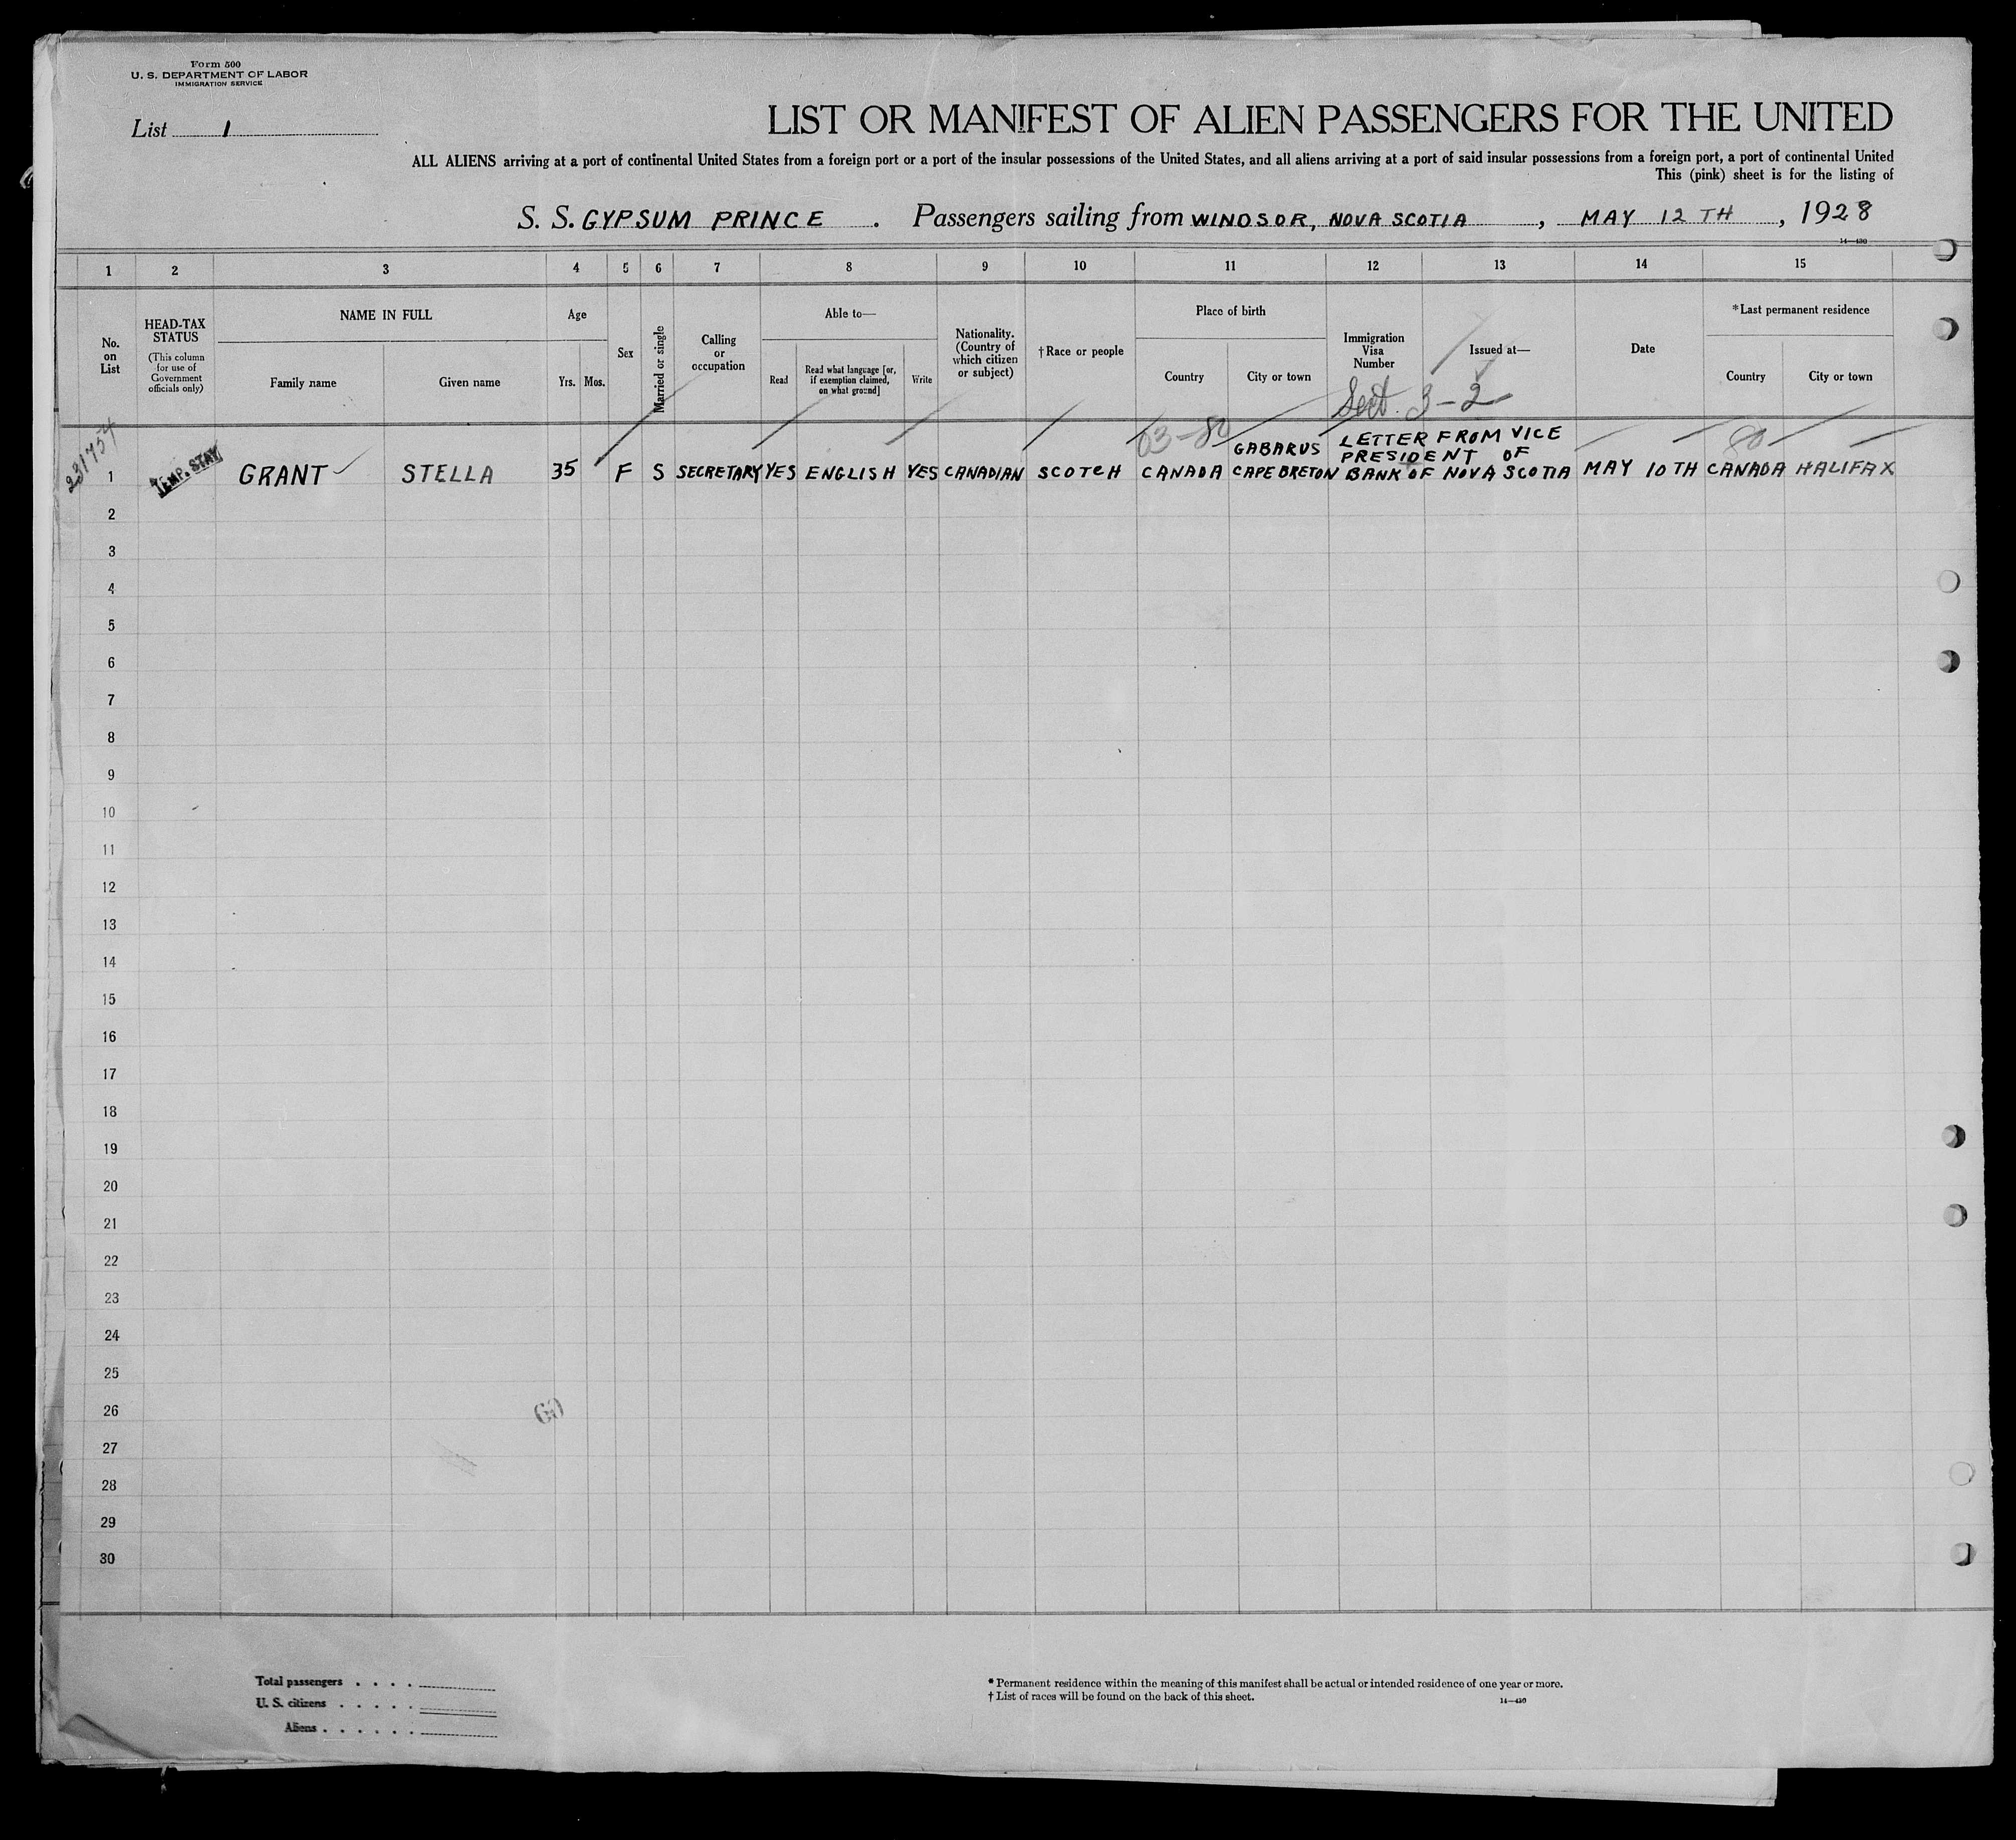 Form 500
U. S. DEPARTMENT OF LABOR
IMMIGRATION SERVICE
List 1
LIST OR MANIFEST OF ALIEN PASSENGERS FOR THE UNITED
ALL ALIENS arriving at a port of continental United States from a foreign port or a port of the insular possessions of the United States, and all aliens arriving at a port of said insular possessions from a foreign port, a port of continental United
This (pink) sheet is for the listing of
S. S. GYPSUM PRINCE . Passengers sailing from WINDSOR, NOVA SCOTIA , MAY 12 TH , 1928
14—430
1 2 3 4 5 6 7 8 9 10 11 12 13 14 15
No. on List
HEAD-TAX STATUS
(This column for use of Government officials only)
NAME IN FULL
Family name
Given name
Age
Yrs. Mos.
Sex
Married or single
Calling or occupation
Able to—
Read
Read what language [or, if exemption claimed, on what ground]
Write
Nationality. (Country of which citizen or subject)
†Race or people
Place of birth
Country
City or town
Immigration Visa Number
Issued at—
Date
*Last permanent residence
Country
City or town
Sect. 3-2
03-80
80
231754
1 TEMP. STAY GRANT STELLA 35 F S SECRETARY YES ENGLISH YES CANADIAN SCOTCH CANADA GABARUS CAPE BRETON LETTER FROM VICE PRESIDENT OF BANK OF NOVA SCOTIA MAY 10 TH CANADA HALIFAX
2
3
4
5
6
7
8
9
10
11
12
13
14
15
16
17
18
19
20
21
22
23
24
25
26
60
27
28
29
30
Total passengers . . . .
U. S. citizens . . . . .
Aliens . . . . . .
* Permanent residence within the meaning of this manifest shall be actual or intended residence of one year or more.
† List of races will be found on the back of this sheet.
14—430